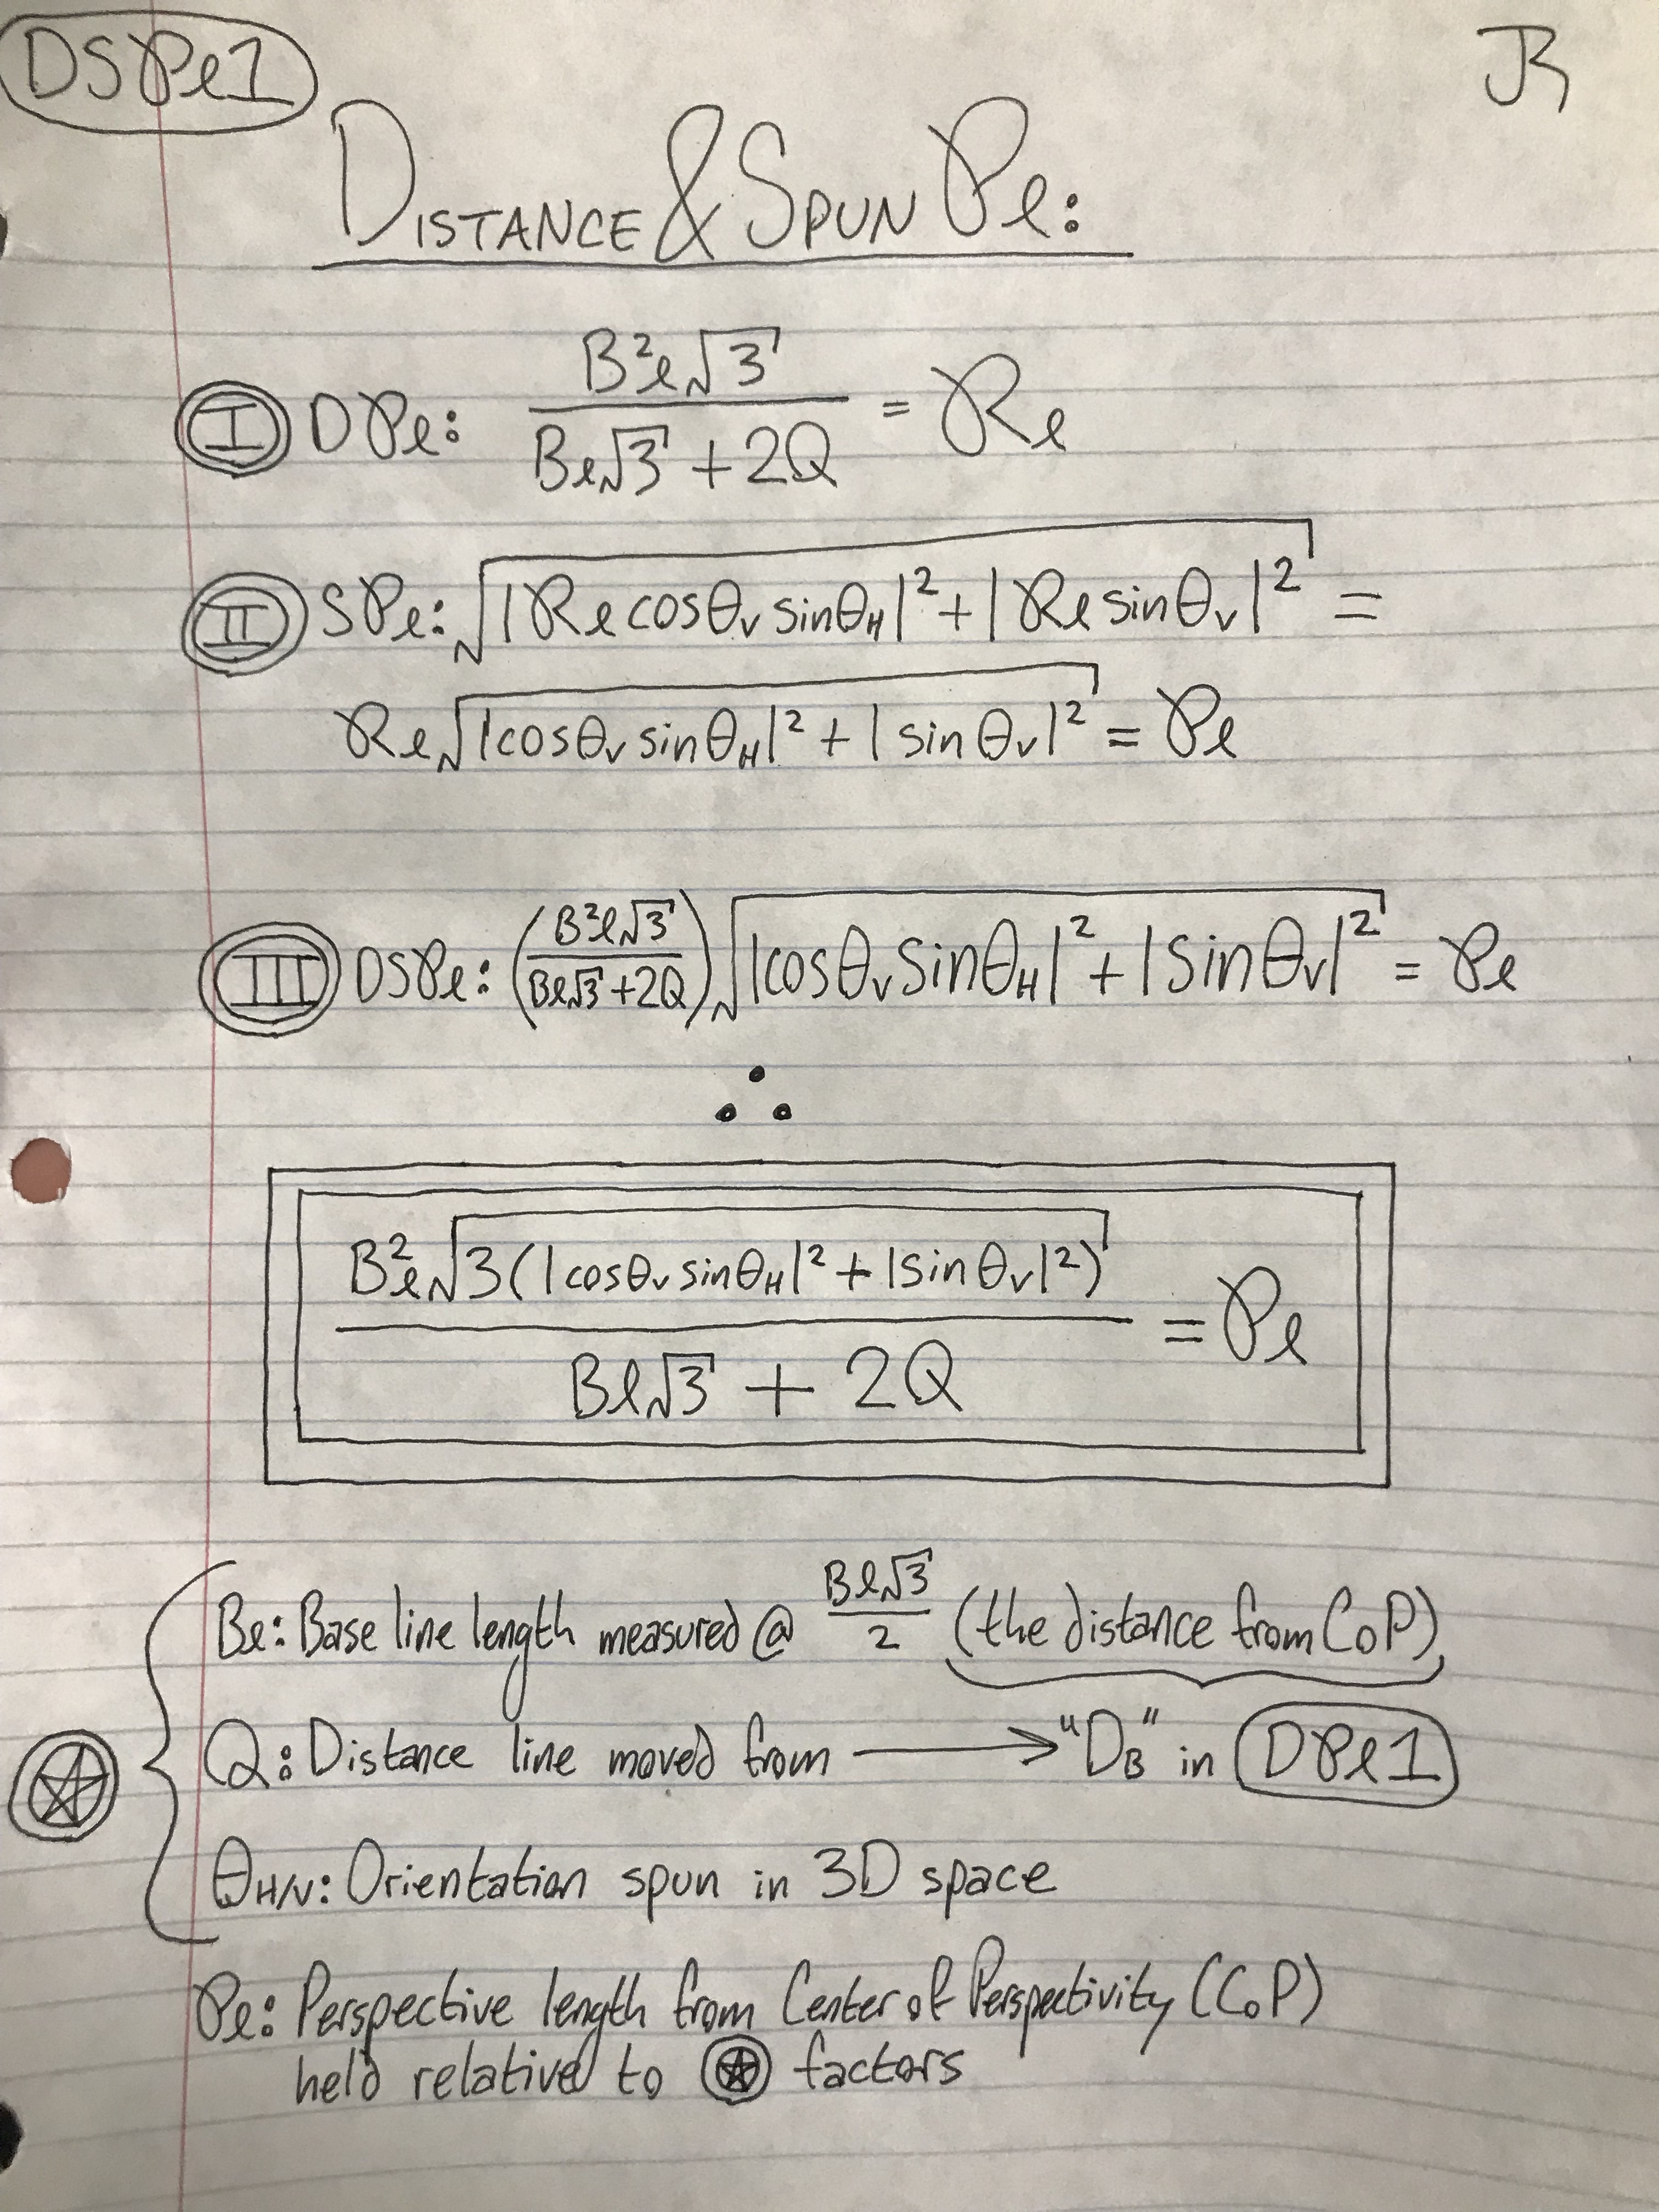 DSPl1
JR
DISTANCE & SPUN Pl:
I DPl: B²l√3 / Bl√3 + 2Q = Rl
II SPl: √|Rl cosθv sinθH|² + |Rl sinθv|² =
Rl √|cosθv sinθH|² + |sinθv|² = Pl
III DSPl: (B²l√3 / Bl√3 + 2Q) √|cosθv sinθH|² + |sinθv|² = Pl
∴
B²l √3(|cosθv sinθH|² + |sinθv|²) / Bl√3 + 2Q = Pl
Bl: Base line length measured @ Bl√3 / 2 (the distance from CoP)
Q: Distance line moved from → "DB" in DPl1
θH/V: Orientation spun in 3D space
Pl: Perspective length from Center of Perspectivity (CoP)
held relative to ☆ factors